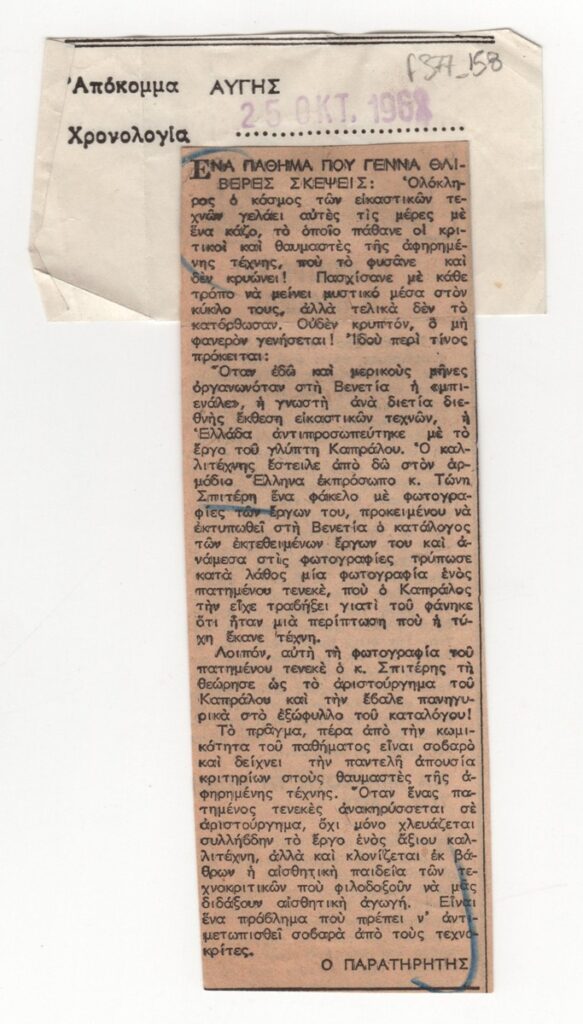 f 377_158
Ἀπόκομμα ΑΥΓΗΣ
25 ΟΚΤ. 1962
Χρονολογία ..............................
ΕΝΑ ΠΑΘΗΜΑ ΠΟΥ ΓΕΝΝΑ ΘΛΙ-
ΒΕΡΕΣ ΣΚΕΨΕΙΣ: Ὁλόκλη-
ρος ὁ κόσμος τῶν εἰκαστικῶν τε-
χνῶν γελάει αὐτὲς τὶς μέρες μὲ
ἕνα κάζο, τὸ ὁποῖο πάθανε οἱ κρι-
τικοὶ καὶ θαυμαστὲς τῆς ἀφηρημέ-
νης τέχνης, ποὺ τὸ φυσᾶνε καὶ
δὲν κρυώνει! Πασχίσανε μὲ κάθε
τρόπο νὰ μείνει μυστικὸ μέσα στὸν
κύκλο τους, ἀλλὰ τελικὰ δὲν τὸ
κατόρθωσαν. Οὐδὲν κρυπτόν, ὃ μὴ
φανερὸν γενήσεται! Ἰδοὺ περὶ τίνος
πρόκειται:
Ὅταν ἐδῶ καὶ μερικοὺς μῆνες
ὀργανωνόταν στὴ Βενετία ἡ «μπι-
ενάλε», ἡ γνωστὴ ἀνὰ διετία διε-
θνὴς ἔκθεση εἰκαστικῶν τεχνῶν, ἡ
Ἑλλάδα ἀντιπροσωπεύτηκε μὲ τὸ
ἔργο τοῦ γλύπτη Καπράλου. Ὁ καλ-
λιτέχνης ἔστειλε ἀπὸ δῶ στὸν ἁρ-
μόδιο Ἕλληνα ἐκπρόσωπο κ. Τώνη
Σπιτέρη ἕνα φάκελο μὲ φωτογρα-
φίες τῶν ἔργων του, προκειμένου νὰ
ἐκτυπωθεῖ στὴ Βενετία ὁ κατάλογος
τῶν ἐκτεθειμένων ἔργων του καὶ ἀ-
νάμεσα στὶς φωτογραφίες τρύπωσε
κατὰ λάθος μία φωτογραφία ἑνὸς
πατημένου τενεκέ, ποὺ ὁ Καπράλος
τὴν εἶχε τραβήξει γιατὶ τοῦ φάνηκε
ὅτι ἦταν μιὰ περίπτωση ποὺ ἡ τύ-
χη ἔκανε τέχνη.
Λοιπόν, αὐτὴ τὴ φωτογραφία τοῦ
πατημένου τενεκὲ ὁ κ. Σπιτέρης τὴ
θεώρησε ὡς τὸ ἀριστούργημα τοῦ
Καπράλου καὶ τὴν ἔβαλε πανηγυ-
ρικὰ στὸ ἐξώφυλλο τοῦ καταλόγου!
Τὸ πρᾶγμα, πέρα ἀπὸ τὴν κωμι-
κότητα τοῦ παθήματος εἶναι σοβαρὸ
καὶ δείχνει τὴν παντελῆ ἀπουσία
κριτηρίων στοὺς θαυμαστὲς τῆς ἀ-
φηρημένης τέχνης. Ὅταν ἕνας πα-
τημένος τενεκὲς ἀνακηρύσσεται σὲ
ἀριστούργημα, ὄχι μόνο χλευάζεται
συλλήβδην τὸ ἔργο ἑνὸς ἄξιου καλ-
λιτέχνη, ἀλλὰ καὶ κλονίζεται ἐκ βά-
θρων ἡ αἰσθητικὴ παιδεία τῶν τε-
χνοκριτικῶν ποὺ φιλοδοξοῦν νὰ μᾶς
διδάξουν αἰσθητικὴ ἀγωγή. Εἶναι
ἕνα πρόβλημα ποὺ πρέπει ν' ἀντι-
μετωπισθεῖ σοβαρὰ ἀπὸ τοὺς τεχνο-
κρίτες.
Ο ΠΑΡΑΤΗΡΗΤΗΣ